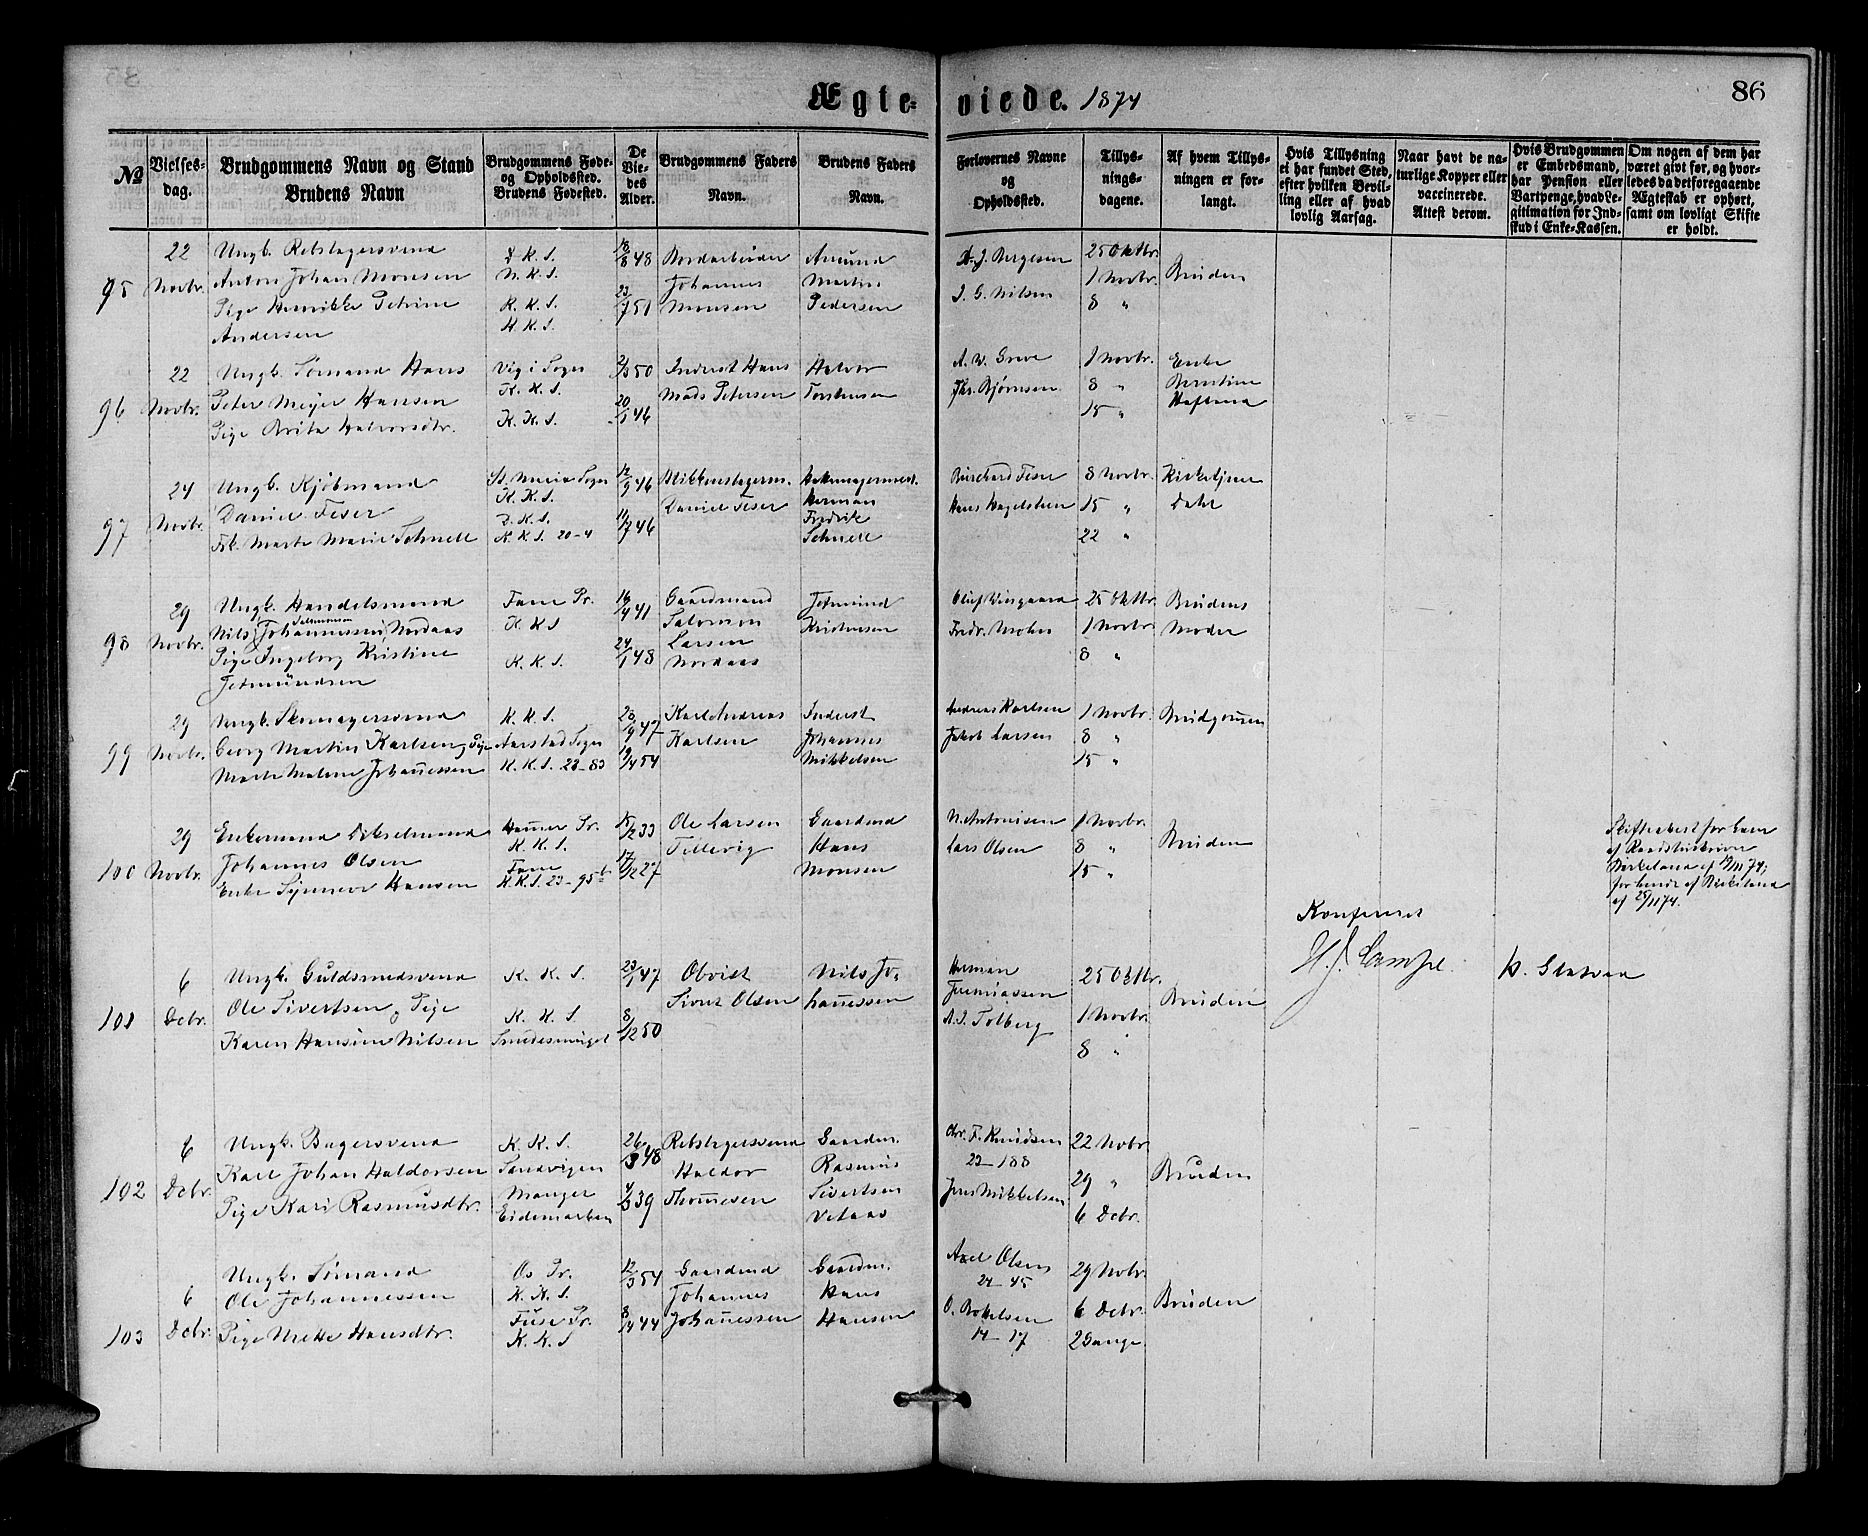 Ægte-viede. 1874
86
No
Vielses-dag.
Brudgommens Navn og Stand
Brudens Navn
Brudgommens Føde- og Opholdssted.
Brudens Fødested.
De Vie-des Alder.
Brudgommens Faders Navn.
Brudens Faders Navn.
Forlovernes Navne og Opholdssted.
Tillys-nings-dagene.
Af hvem Tillys-ningen er for-langt.
Hvis Tillysning ei har fundet Sted, efter hvilken Bevil-ling eller af hvad lovlig Aarsag.
Naar havt de na-turlige Kopper eller vaccinerede. Attest derom.
Hvis Brudgommen er Embedsmand, har Pension eller Vartpenge, hvad Le-gitimation for Ind-skud i Enke-Kassen.
Om nogen af dem har været givt før, og hvor-ledes da det foregaaende Ægteskab er ophørt, samt om lovligt Skifte er holdt.
95
22 Novbr.
Ungk. Rebslagersvend
Anton Johan Monsen
Pige Henrikke Petrine
Andersen
D. K. S.
N. K. S.
K. K. S.
K. K. S.
18/8 48
23/7 51
Johannes
Monsen
Amund
Martin
Pedersen
A. J. Bergesen
J. G. Nilsen
25 Oktbr.
1 Novbr.
8 "
Bruden
96
22 Novbr.
Ungk. Sømand Hans
Peter Meyer Hansen
Pige Brita Halvorsdtr.
Vig i Sogn
K. K. S.
K. K. S.
50
20/1 46
Inderst Hans
Mads Petersen
Halvor
Torstensen
A. W. Greve
Chr. Bjørnsen
1 Novbr.
8 "
15 "
Enke
97
24 Novbr.
Ungk. Kjøbmand
Daniel Feser
Frk. Marte Marie Schnell
St. Maria Sogn
K. K. S.
D. K. S.
K. K. S. 20-4
12/9 46
11/7 46
Blikkenslagerm.
Daniel Feser
Herman
Fredrik
Schnell
Burchard Feser
Hans Hagelsteen
8 Novbr.
15 "
22 "
Kirketjener
Dahl
98
29 Novbr.
Ungk. Handelsmand
Salomonsen
Nils Johannessen Nordaas
Pige Ingeborg Kristine
Jetmundsen
Fane Pr.
K. K. S
K. K. S.
41
24/1 48
Gaardmand
Salomon
Larsen
Nordaas
Jetmund
Kristensen
Oluf Wingaard
Fredr. Mohn
25 Oktbr.
1 Novbr.
8 "
Brudens
Moder
99
29 Novbr.
Ungk. Skomagersvend
Georg Martin Karlsen, Pige
Marte Malene Johanessen
K. K. S.
Aarstad Sogn
K. K. S. 23-83
28/9 47
19/4 54
Karl Andreas
Karlsen
Inderst
Johannes
Mikkelsen
Andreas Karlsen
Jakob Larsen
1 Novbr.
8 "
15 "
Brudgomen
100
29 Novbr.
Enkemand Dikselmand
Johannes Olsen
Enke Synneve Hansen
Hammer Pr.
K. K. S.
Fane
K. K. S. 23-95b
15/12 33
17/12 27
Ole Larsen
Tellevig
Gaardmd
Hans
Monsen
N. Antonisen
Lars Olsen
1 Novbr.
8 "
15 "
Bruden
Skifteattest for ham
af Raadstueskriver
Birkeland af 74,
for hende af Birkeland
af 25/11 74.
Konfereret
H. J. Lampe.
101
6 Decbr.
Ungk. Guldsmedsvend
Ole Sivertsen, Pige
Karen Hansine Nilsen
K. K. S.
K. K. S
Smedesmuget
23/1 47
8/12 50
Sivert Olsen
Nils Jo-
hanessen
Herman
Jeremiassen
A. J. Solberg
25 Oktbr.
1 Novbr.
8 "
Bruden
102
6 Decbr.
Ungk. Bagersvend
Karl Johan Haldorsen
Pige Kari Rasmusdtr.
K. K. S.
Sandvigen
Manger
Eidemarken
26/3 48
4/3 39
Rebslagersvend
Haldor
Thomesen
Gaardm.
Rasmus
Sivertsen
Vetaas
Chr. F. Knudsen
23-188
Jens Mikkelsen
22 Novbr
29 "
6 Decbr.
Bruden
103
6 Decbr.
Ungk. Sømand
Ole Johannessen
Pige Mette Hansdtr.
Os Pr.
K. K. S.
Fuse Pr.
K. K. S
12/3 54
44
Gaardmd
Johannes
Johanessen
Gaardm.
Hans
Hansen
Axel Olsen
21-45
O. Botelsen
14-17
29 Novbr.
6 Decbr.
2 Gange.
Bruden